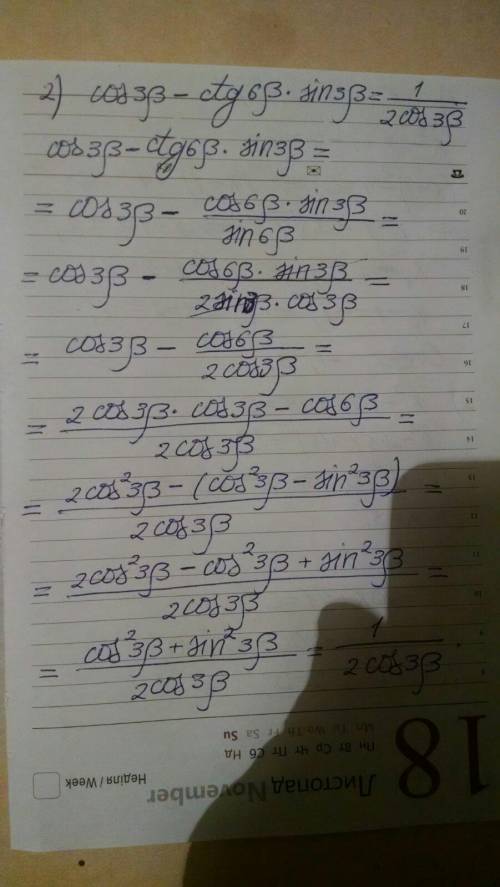 2) cos3β − ctg6β · sin3β = 1/(2cos3β)
cos3β − ctg6β · sin3β =
= cos3β − (cos6β · sin3β)/(sin6β) =
= cos3β − (cos6β · sin3β)/(2sin3β · cos3β) =
= cos3β − (cos6β)/(2cos3β) =
= (2cos3β · cos3β − cos6β)/(2cos3β) =
= (2cos²3β − (cos²3β − sin²3β))/(2cos3β) =
= (2cos²3β − cos²3β + sin²3β)/(2cos3β) =
= (cos²3β + sin²3β)/(2cos3β) = 1/(2cos3β)
20
19
18
17
16
15
14
13
12
11
10
9
18
Mn Tu We Th Fr Sa Su
Пн Вт Ср Чт Пт Сб Нд
Листопад November
Неділя / Week